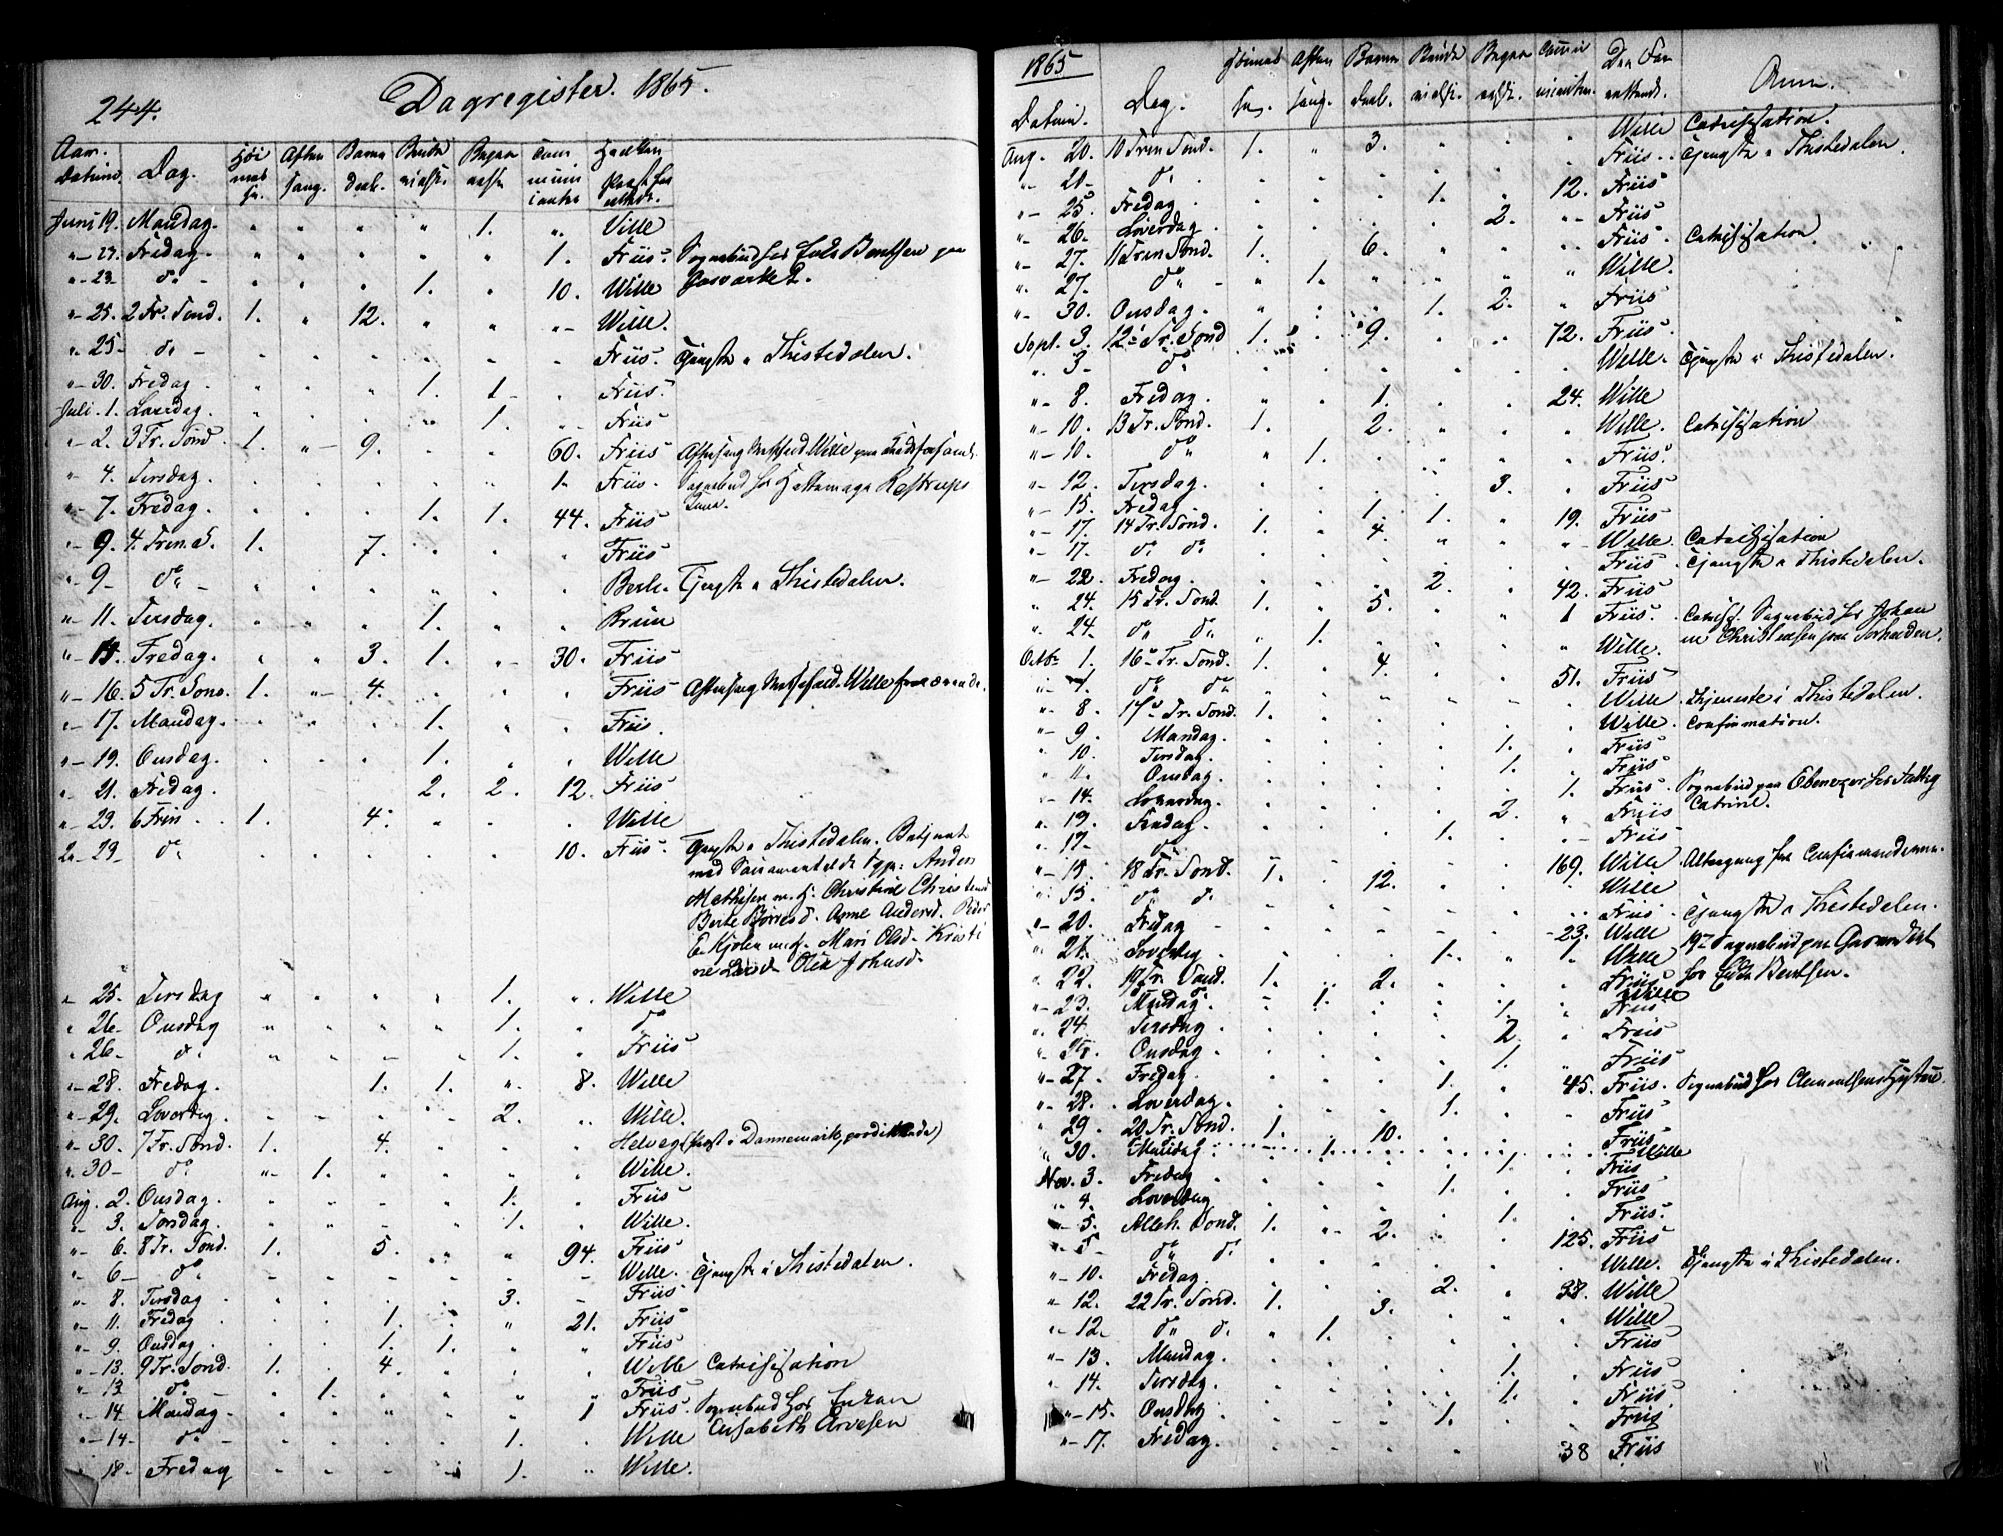 244.
Dagregister. 1865.
Aar. Datum. Dag. Høi mes se. Aften sang. Barne daab. Brude vielse. Begra velse Com muni canter
Juni 19. Mandag. " " " " 1. " Wille
"- 23. Fredag. " " " " " 1. Friis. Sognebud hos Enke Bentsen paa
"- 23 do - " " " 1. " 10. Wille Gasværket.
"- 25. 2 Tr. Sønd. 1. " 12. " " " Wille.
"- 25 - do - Friis. Tjeneste i Thistedalen.
"- 30. Fredag. " " " 1. 1 - Friis.
Juli. 1. Løverdag. 1. Friis
"- 2. 3 Tr. Sønd. 1. " 9. 60. Friis Aftensang Wille
"- 4. Tirsdag. 1 - Friis. Sognebud hos
"- 7. Fredag. 1. 1. 44. Friis
"- 9. 4. Trin. S. 1. 7. Friis
"- 9 - do - Berle. Tjeneste i Thistedalen.
"- 11. Tirsdag. 1. Brun
"- 14. Fredag. 3. 1. " 30. Friis
"- 16. 5 Tr. Sønd. 1. " 4. Friis Aftensang Wille
"- 17. Mandag. 1. Friis.
"- 19. Onsdag. 1. Wille
" 21. Fredag. 2. 2. 12. Friis
"- 23. 6 Trin. 1. 4. Wille
" 23 - do 10. Friis. Tjeneste i Thistedalen. Betjent
med Sacramentet Anders
Mathisen m. H. Christine Christensd
Berte Børresd. Anne Andersd. Peder
E. Kjølen m. H. Mari Olsd. Kristi
ne Larsd Olea Johnsd.
" 25. Tirsdag 1. Wille
" 26 - Onsdag 1. do
" 26 - do 1. Friis
"- 28. Fredag. 1. 1. " 8. Wille
"- 29. Løverdag 2. Wille.
"- 30. 7 Tr. Sønd. 1. 4. Helveg (Præst i Dannemark, prædikede)
"- 30 - do " 1. Wille.
Aug. 2. Onsdag. 1. Friis
"- 3. Torsdag. 1. Wille.
"- 6. 8 Tr. Sønd. 1. 5. 94. Friis
"- 6 - do Wille. Tjeneste i Thistedalen.
"- 8. Tirsdag 3. Friis
"- 11. Fredag 1. 21. Friis
"- 9. Onsdag 1. 1. Friis
"- 13. 9 Tr. Sønd. 1. 4. Wille Catechisation
"- 13 do - 1. Friis.
"- 14. Mandag 1 Friis. Sognebud hos Enken
"- 14 - do - 1. Wille Elisabeth Arvesen
" 18. Fredag 1. Wille.
1865
Datum. Dag. Høimes se. Aften sang. Barne daab. Brude vielse. Begra velse. Com municanter. Den For rettende. Anm.
Aug. 20. 10 Trin Sønd. 1. " 3. Wille Catechisation.
"- 20 - do Friis. Tjeneste i Thistedalen.
"- 25. Fredag 1. 12. Friis
"- 26. Løverdag 2. Friis
"- 27. 11 Trin Sønd. 1. 6. Friis. Catechisation
" 27. do " 1. Wille.
"- 30. Onsdag. 1. 2. Friis
Sept. 3. 12 Tr. Sønd 1. 9. 72. Friis.
" 3 - do Wille. Tjeneste i Thistedalen.
"- 8. Fredag 1. 24. Wille
"- 10. 13 Tr. Sønd. 1. 2. Wille. Catechisation
"- 10. do " 1. Friis.
"- 12. Tirsdag. 3. Friis
"- 15. Fredag 1. 1. 19. Friis
"- 17. 14 Tr. Sønd. 1. 4. Wille. Catechisation
"- 17. do do Friis. Tjeneste i Thistedalen.
"- 22. Fredag. 2. 42. Friis
" 24. 15 Tr. Sønd. 1. 5. 1 Friis. Catech. Sognebud hos Johan
" 24. do do 1. Wille. m Christensen
Octbr 1. 16 Tr. Sønd. 1. 4. 51. Friis
"- 1. do do Wille. Thjeneste i Thistedalen.
"- 8. 17 Tr. Sønd. 1. Wille. Confirmation.
"- 9 Mandag. 1. Friis
" 10. Tirsdag. Friis
" 11. Onsdag 1. 1. Friis. Sognebud paa Ebenezer hos
"- 14. Løverdag. 2. Friis Catrine.
" 13. Fredag. 1. Friis
" 17 - do 169. Wille Altergang for Confirmanderne.
"- 15. 18 Tr. Sønd. 1. 12. Wille
" 15. do do Friis Tjeneste i Thistedalen.
"- 20. Fredag 23. Wille
" 21. Løverdag 1. 1. Wille
" 22. 19 Tr. Sønd. 1. 2. Friis hos Bentsen.
"- 23. Mandag. 1. 1. Friis Wille
" 24. Tirsdag 2. Friis
" 25. Onsdag 1. Friis
"- 27. Fredag. 1. 45. Friis. Sognebud hos
"- 28. Løverdag. 1. Friis
" 29. 20 Tr. Sønd. 1. 10. Friis
" 30. Mandag 1. 1. Wille Friis
Nov. 3. Fredag 1. Friis
"- 4. Løverdag 1. Friis.
"- 5. Alleh. Sønd. 1. 2. 125. Friis
"- 5 - do do Wille. Tjeneste i Thistedalen.
"- 10. Fredag. 2. 38. Wille
"- 12. 22 Tr. Sønd. 1. 3. Wille
"- 12 - do do " 1. Friis
"- 13. Mandag 1. Friis
"- 14. Tirsdag. 1. Friis
"- 15. Onsdag 1. Friis
"- 17. Fredag. 38 Friis